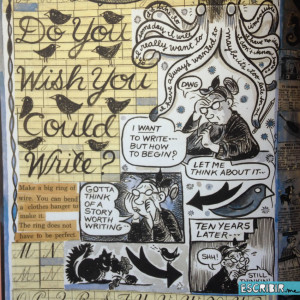 Do You
Wish You
Could
Write?
someday I will
I really want to
I've always wanted to
maybe it's too late
DANG
I WANT
TO WRITE---
BUT HOW
TO BEGIN?
LET ME
THINK ABOUT IT--
Make a big ring of
wire. You can bend
a clothes hanger to
make it.
The ring does not
have to be perfect.
GOTTA
THINK
OF A
STORY
WORTH
WRITING--
TEN YEARS
LATER---
SHH!
STILL
THINKIN'
ESCRIBIR.me